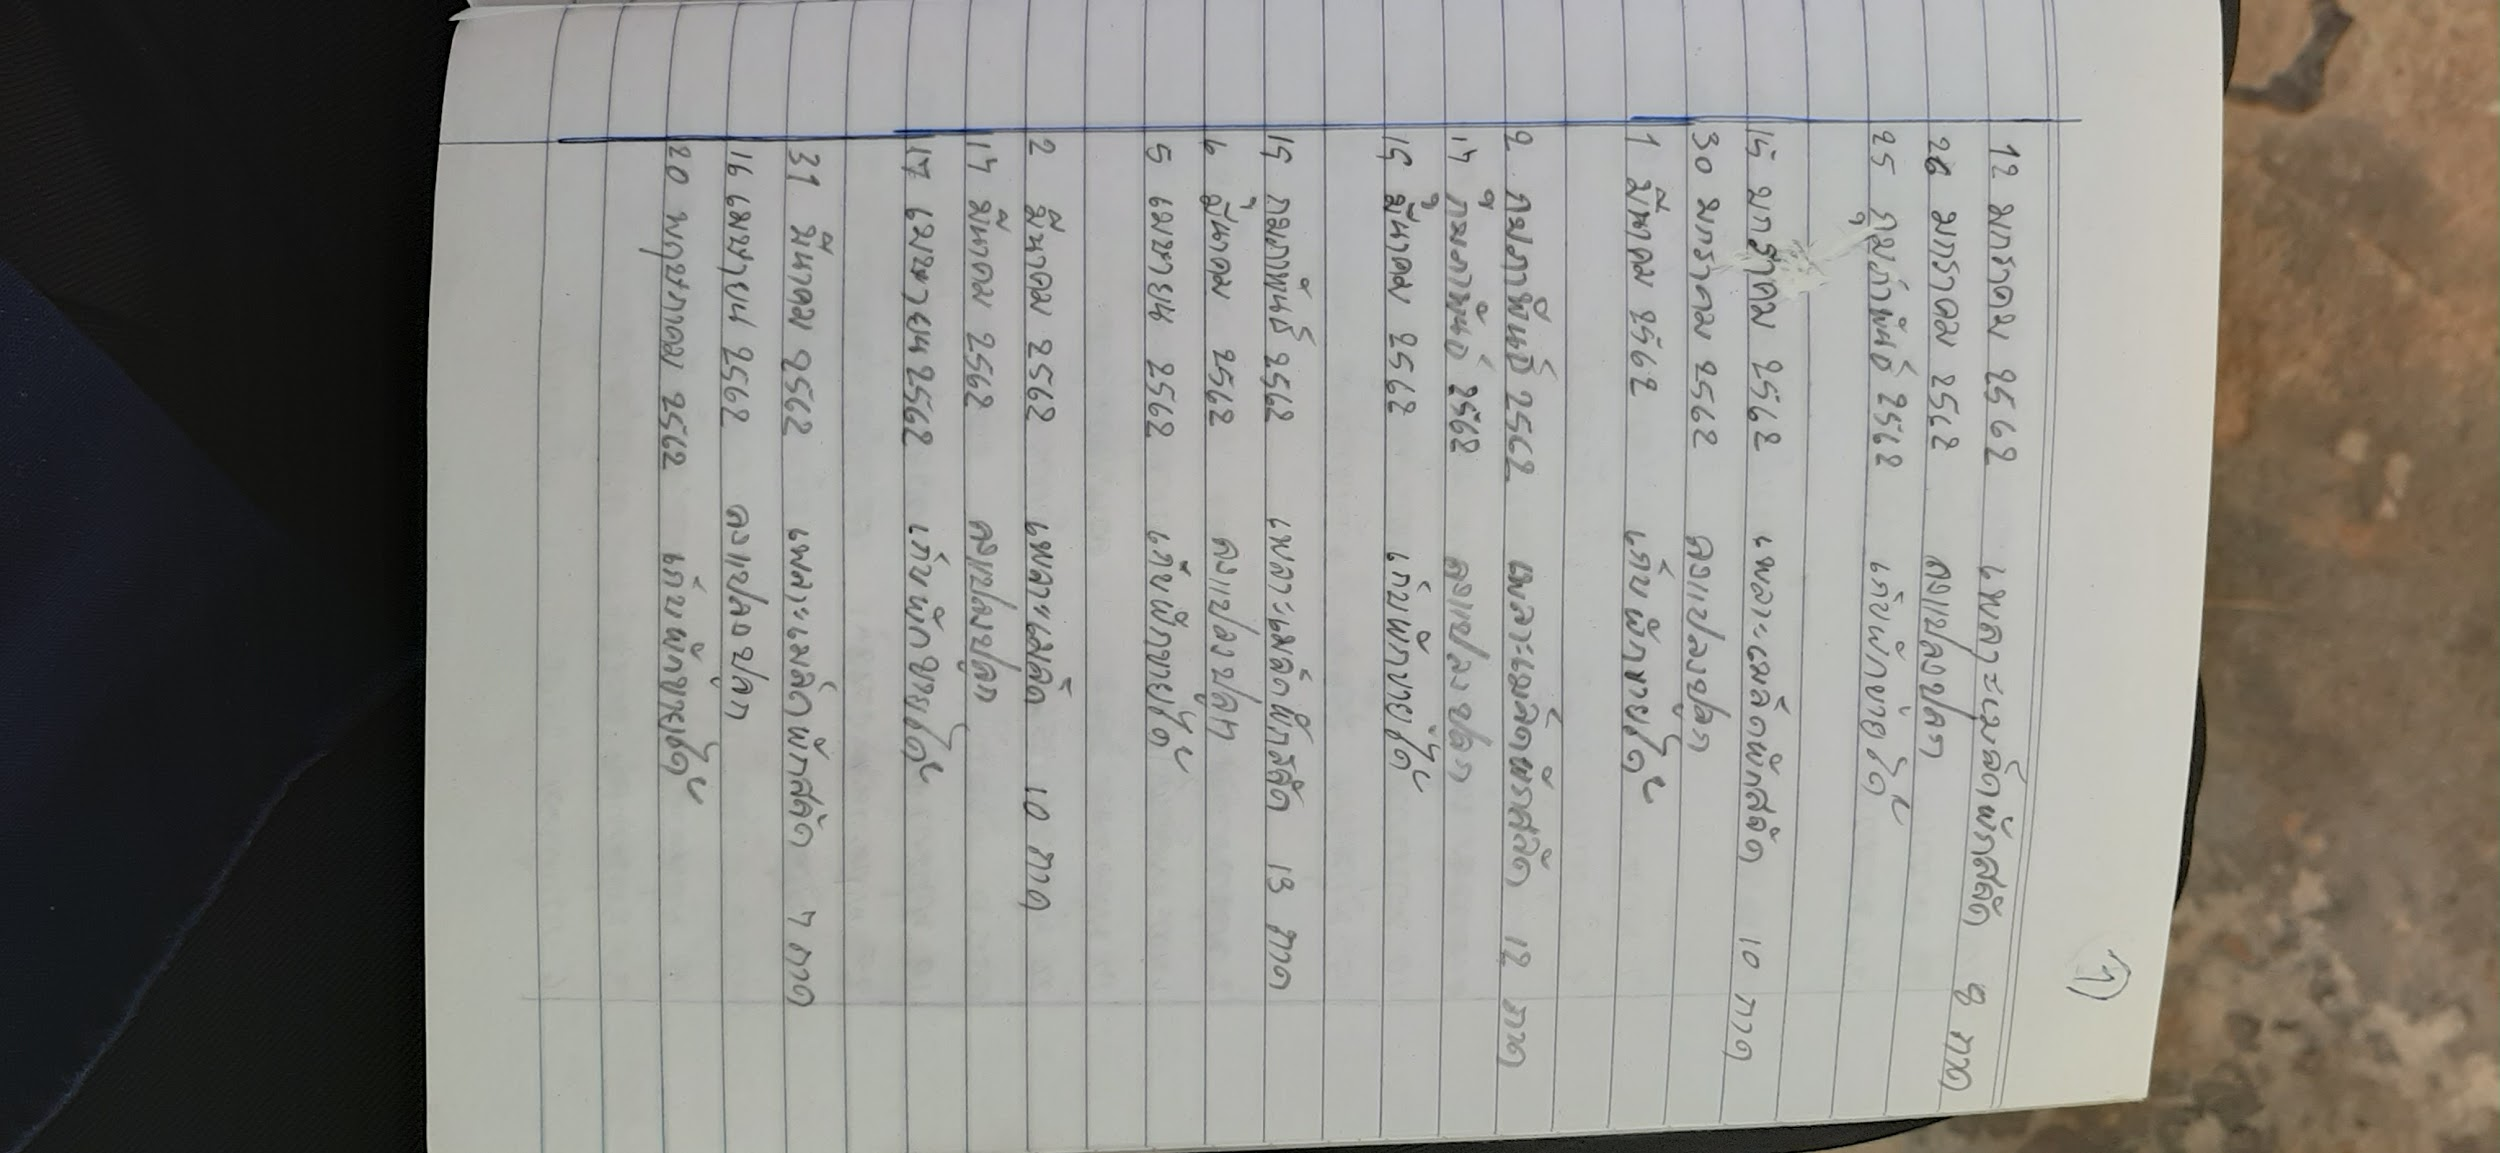 (7)
12 มกราคม 2562 เพาะเมล็ดผักสลัด 8 ถาด
26 มกราคม 2562 ลงแปลงปลูก
25 กุมภาพันธ์ 2562 เก็บผักขายได้
15 มกราคม 2562 เพาะเมล็ดผักสลัด 10 ถาด
30 มกราคม 2562 ลงแปลงปลูก
1 มีนาคม 2562 เก็บผักขายได้
2 กุมภาพันธ์ 2562 เพาะเมล็ดผักสลัด 12 ถาด
17 กุมภาพันธ์ 2562 ลงแปลงปลูก
19 มีนาคม 2562 เก็บผักขายได้
19 กุมภาพันธ์ 2562 เพาะเมล็ดผักสลัด 13 ถาด
6 มีนาคม 2562 ลงแปลงปลูก
5 เมษายน 2562 เก็บผักขายได้
2 มีนาคม 2562 เพาะเมล็ด 10 ถาด
17 มีนาคม 2562 ลงแปลงปลูก
17 เมษายน 2562 เก็บผักขายได้
31 มีนาคม 2562 เพาะเมล็ดผักสลัด 7 ถาด
16 เมษายน 2562 ลงแปลงปลูก
20 พฤษภาคม 2562 เก็บผักขายได้